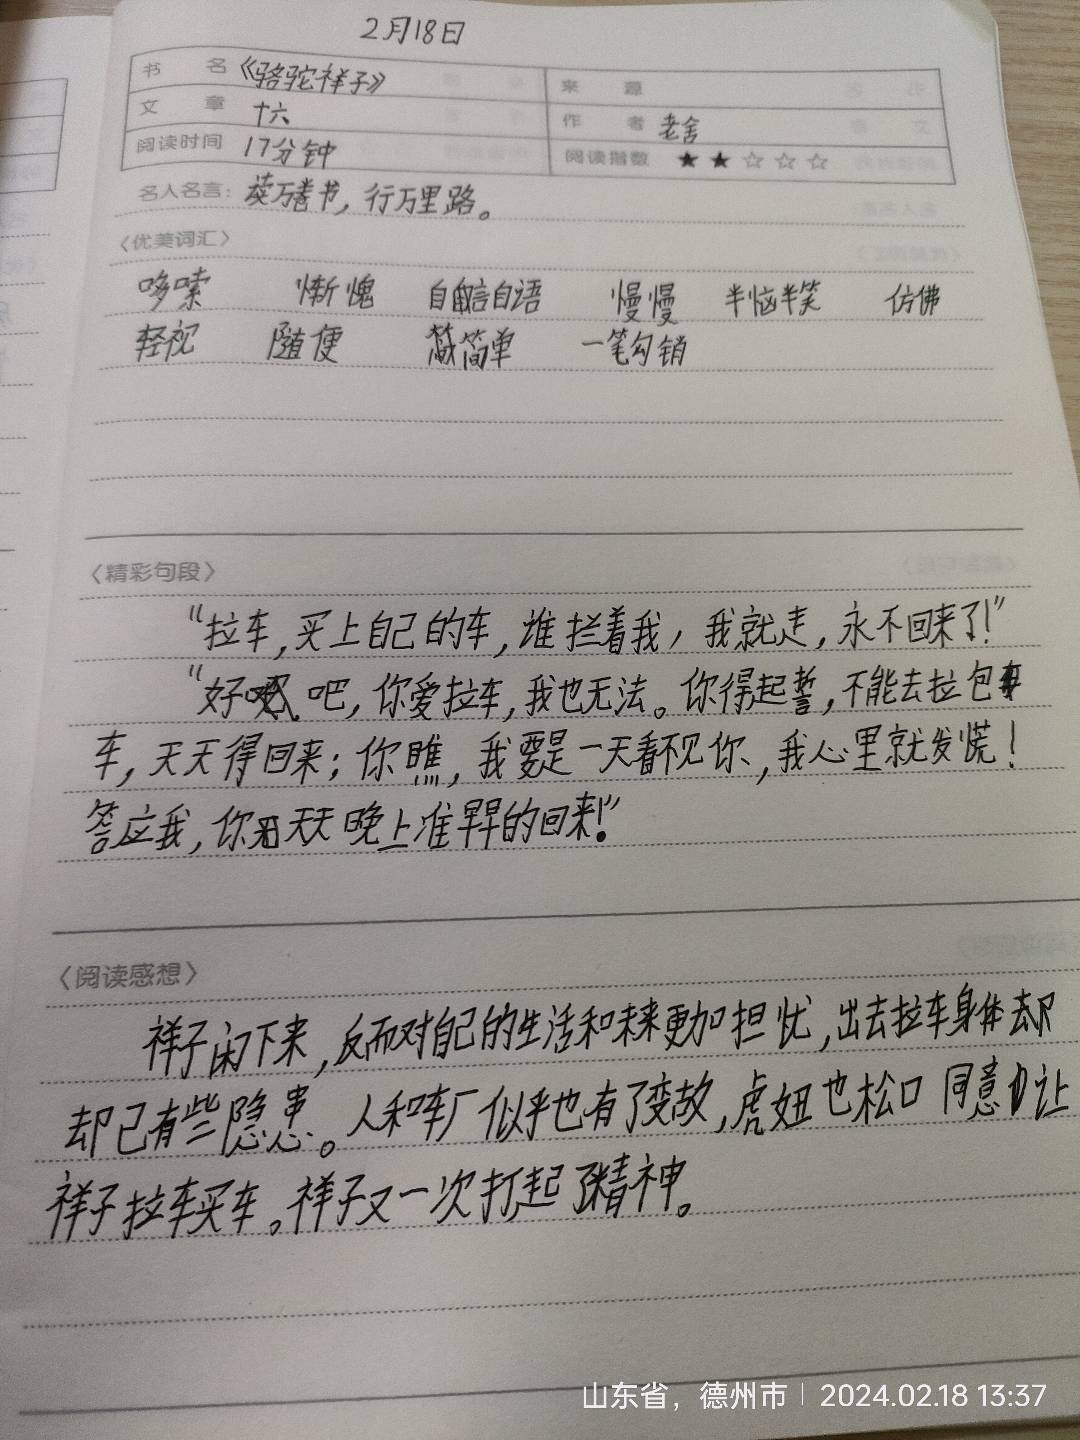 2月18日
书 名 《骆驼祥子》 来 源
文 章 十六 作 者 老舍
阅读时间 17分钟 阅读指数 ★★☆☆☆
名人名言：读万卷书，行万里路。
〈优美词汇〉
哆嗦 惭愧 自言自语 慢慢 半恼半笑 仿佛
轻视 随便 简单 一笔勾销
〈精彩句段〉
“拉车，买上自己的车，谁拦着我，我就走，永不回来了！”
“好吧，你爱拉车，我也无法。你得起誓，不能去拉包
车，天天得回来；你瞧，我要是一天看不见你，我心里就发慌！
答应我，你天天晚上准早早的回来！”
〈阅读感想〉
祥子闲下来，反而对自己的生活和未来更加担忧，出去拉车身体却
却已有些隐患。人和车厂似乎也有了变故，虎妞也松口同意让
祥子拉车买车。祥子又一次打起了精神。
山东省，德州市 | 2024.02.18 13:37